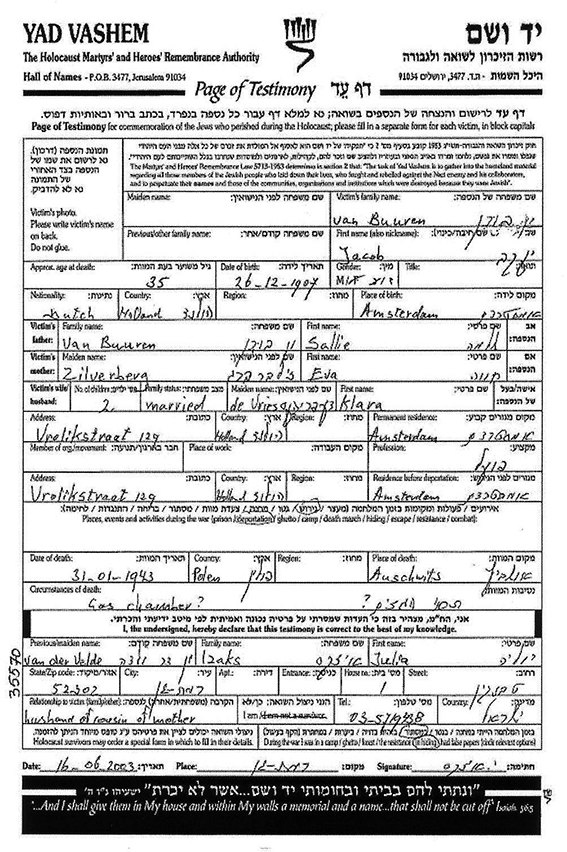 YAD VASHEM
יד ושם
The Holocaust Martyrs' and Heroes' Remembrance Authority
רשות הזיכרון לשואה ולגבורה
Hall of Names - P.O.B. 3477, Jerusalem 91034
היכל השמות - ת.ד. 3477, ירושלים 91034
Page of Testimony דף עד
דף עד לרישום והנצחה של הנספים בשואה; נא למלא דף עבור כל נספה בנפרד, בכתב ברור ובאותיות דפוס.
Page of Testimony for commemoration of the Jews who perished during the Holocaust; please fill in a separate form for each victim, in block capitals
The Martyrs' and Heroes' Remembrance Law 5713-1953 determines in section 2 that: "The task of Yad Vashem is to gather into the homeland
material regarding all those members of the Jewish people who laid down their lives, who fought and rebelled against the Nazi enemy and his collaborators,
and to perpetuate their names and those of the communities, organisations and institutions which were destroyed because they were Jewish".
תמונת הנספה (דרכון).
נא לרשום את שמו של
הנספה בצד האחורי
של התמונה
נא לא להדביק.
Victim's photo.
Please write victim's name
on back.
Do not glue.
Maiden name: שם משפחה לפני הנישואין:
Victim's family name: שם משפחה של הנספה:
van Buuren ון בורן
Previous/other family name: שם משפחה קודם/אחר:
First name (also nickname):
Jacob
Approx. age at death: גיל משוער בעת המוות:
Date of birth: תאריך לידה:
Gender: מין:
Title: תואר:
35 26-12-1907
Nationality: נתינות: Country: ארץ: Region: מחוז: Place of birth: מקום לידה:
Dutch Holland הולנד Amsterdam אמסטרדם
Victim's father: Family name: שם משפחה: First name: שם פרטי: אב הנספה:
Van Buuren ון בורן Sallie
Victim's mother: Maiden name: שם משפחה לפני הנישואין: First name: שם פרטי: אם הנספה:
Zilverberg זילברברג Eva חווה
Victim's wife/husband: No. of children: Family status: מצב משפחתי: Maiden name: First name: שם פרטי: אישה/בעל של הנספה:
2 married de Vries Klara
Address: כתובת: Country: ארץ: Region: מחוז: Permanent residence: מקום מגורים קבוע:
Vrolikstraat 129 Holland הולנד Amsterdam אמסטרדם
Member of org./movement: חבר בארגון/תנועה: Place of work: מקום העבודה: Profession: מקצוע:
פועל
Address: כתובת: Country: ארץ: Region: מחוז: Residence before deportation:
Vrolikstraat 129 Holland הולנד Amsterdam אמסטרדם
Places, events and activities during the war (prison / deportation / ghetto / camp / death march / hiding / escape / resistance / combat):
Date of death: תאריך המוות: Country: ארץ: Region: מחוז: Place of death: מקום המוות:
31-01-1943 Polen פולין Auschwits
Circumstances of death: נסיבות המוות:
Gas chamber? תאי הגזים?
אני, הח"מ, מצהיר בזה כי העדות שמסרתי על פרטיה נכונה ואמיתית לפי מיטב ידיעתי והכרתי.
I, the undersigned, hereby declare that this testimony is correct to the best of my knowledge.
35570
Previous/maiden name: שם משפחה קודם: Family name: שם משפחה: First name: שם פרטי:
van der Velde ון דר ולדה Izaks Julia יוליה
State/Zip code: City: עיר: Apt.: דירה: Entrance: כניסה: House no.: בית מס': Street: רחוב:
52302 רמת-גן 1
Relationship to victim (family/other): I am / am not a survivor: Tel.: מס' טלפון: Country: מדינה:
husband of cousin of mother ישראל
Holocaust survivors may order a special form in which to fill in their details.
During the war I was in a camp / ghetto / forest / the resistance / in hiding / had false papers (circle relevant options)
Date: 16-06-2003 תאריך: Place: רמת-גן מקום: Signature: חתימה:
"ונתתי להם בביתי ובחומותי יד ושם...אשר לא יכרת" ישעיהו נ"ו ה'
'...And I shall give them in My house and within My walls a memorial and a name...that shall not be cut off' Isaiah 56:5